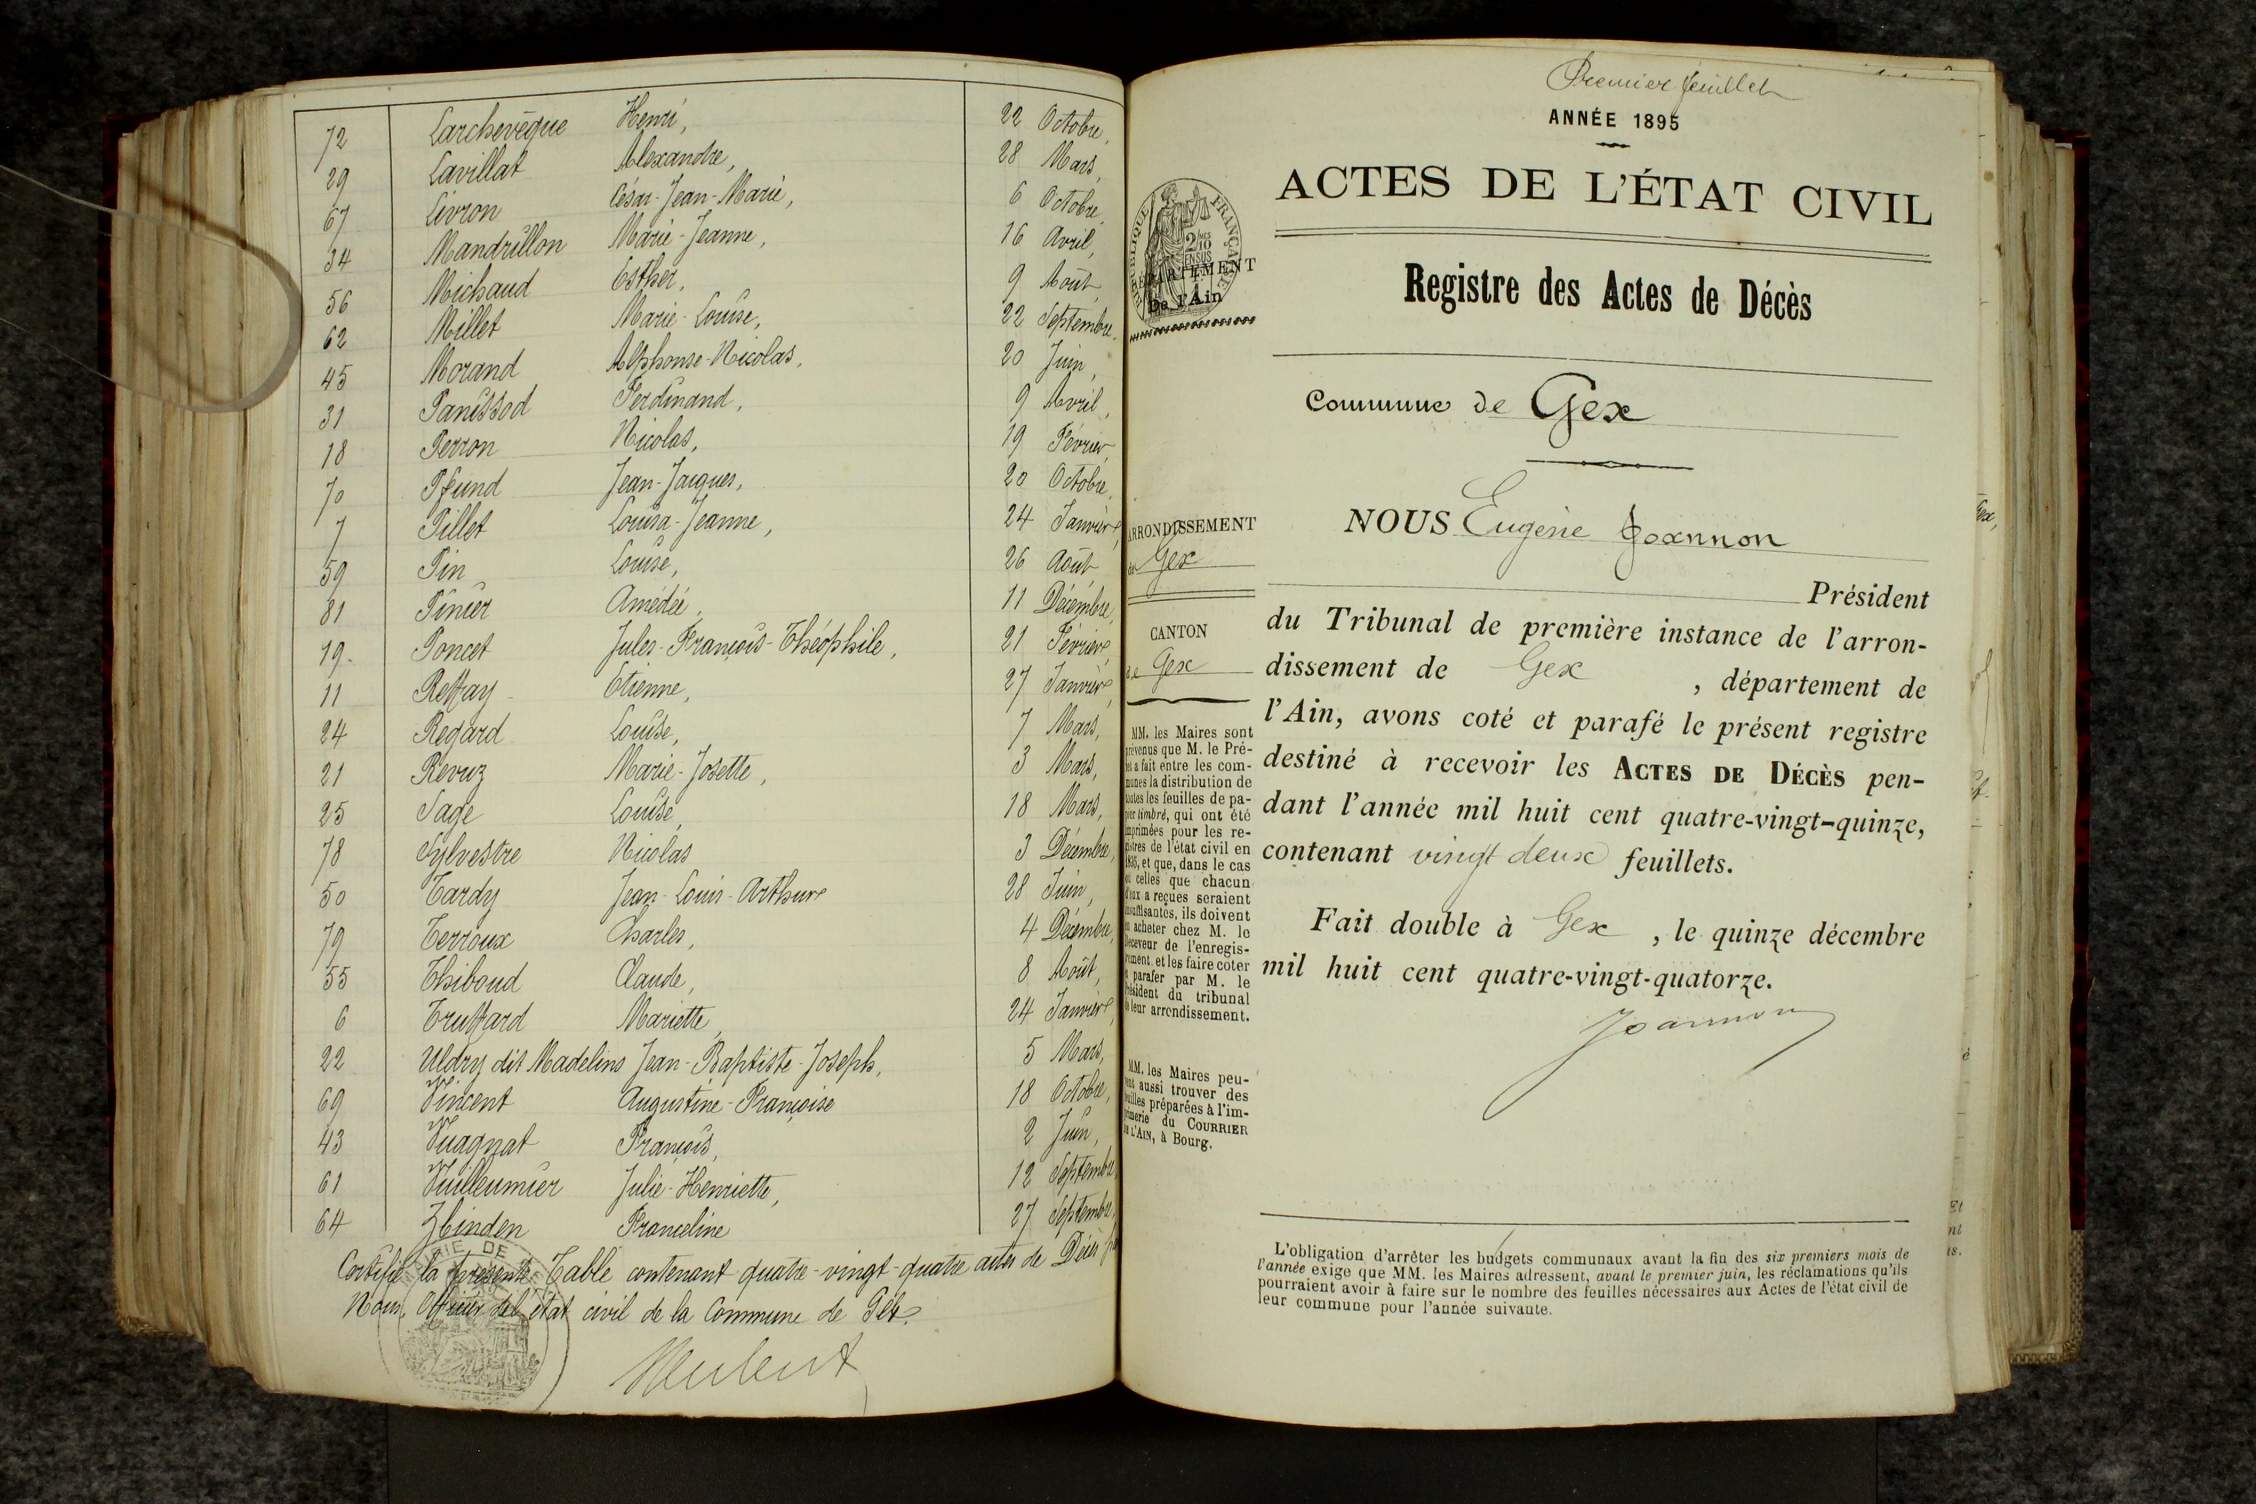 72 Larchevêque Henri, 22 Octobre,
29 Lavillat Alexandre, 28 Mars,
67 Livron César-Jean-Marie, 6 Octobre,
34 Mandrillon Marie-Jeanne, 16 Avril,
56 Michaud Esther, 9 Août,
62 Millet Marie-Louise, 22 Septembre,
45 Morand Alphonse-Nicolas, 20 Juin,
31 Panissod Ferdinand, 9 Avril,
18 Perron Nicolas, 19 Février,
70 Pfund Jean-Jacques, 20 Octobre,
7 Pillet Louisa-Jeanne, 24 Janvier,
59 Pin Louise, 26 Août
81 Pinier Amédée, 11 Décembre,
19. Poncet Jules-François-Théophile, 21 Février,
11 Reffay Etienne, 27 Janvier,
24 Regard Louise, 7 Mars,
21 Revuz Marie-Josette, 3 Mars,
25 Sage Louise, 18 Mars,
78 Sylvestre Nicolas 3 Décembre,
50 Tardy Jean-Louis-Arthur 28 Juin,
79 Terroux Charles, 4 Décembre,
55 Thiboud Claude, 8 Août,
6 Truffard Mariette, 24 Janvier,
22 Uldry dit Madelins Jean-Baptiste-Joseph, 5 Mars,
69 Vincent Augustine-Françoise 18 Octobre,
43 Vuagnat François, 2 Juin,
61 Vuilleumier Julie-Henriette, 12 Septembre
64 Zbinden Franceline 27 Septembre,
Certifié la présente Table contenant quatre-vingt-quatre actes de Décès par
Nous, Officier de l'état civil de la Commune de Gex.
MAIRIE DE GEX
Premier feuillet
ANNÉE 1895
ACTES DE L'ÉTAT CIVIL
Registre des Actes de Décès
RÉPUBLIQUE FRANÇAISE
2/10 EN SUS
DÉPARTEMENT
De l'Ain
Commune de Gex
ARRONDISSEMENT
de Gex
CANTON
de Gex
MM. les Maires sont
prévenus que M. le Pré-
fet a fait entre les com-
munes la distribution de
toutes les feuilles de pa-
pier timbré, qui ont été
imprimées pour les re-
gistres de l'état civil en
1895, et que, dans le cas
où celles que chacun
d'eux a reçues seraient
insuffisantes, ils doivent
en acheter chez M. le
Receveur de l'enregis-
trement et les faire coter
et parafer par M. le
Président du tribunal
de leur arrondissement.
MM. les Maires peu-
vent aussi trouver des
feuilles préparées à l'im-
primerie du COURRIER
DE L'AIN, à Bourg.
NOUS Eugène Joannon
Président
du Tribunal de première instance de l'arron-
dissement de Gex , département de
l'Ain, avons coté et parafé le présent registre
destiné à recevoir les ACTES DE DÉCÈS pen-
dant l'année mil huit cent quatre-vingt-quinze,
contenant vingt deux feuillets.
Fait double à Gex , le quinze décembre
mil huit cent quatre-vingt-quatorze.
Joannon
L'obligation d'arrêter les budgets communaux avant la fin des six premiers mois de
l'année exige que MM. les Maires adressent, avant le premier juin, les réclamations qu'ils
pourraient avoir à faire sur le nombre des feuilles nécessaires aux Actes de l'état civil de
leur commune pour l'année suivante.